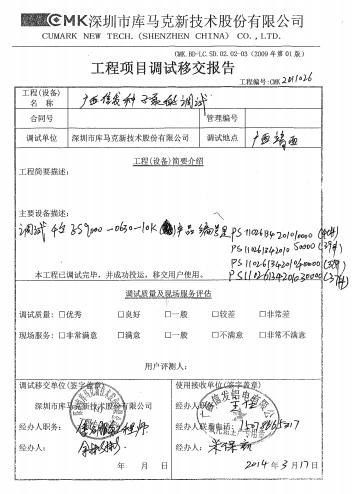 CMK深圳市库马克新技术股份有限公司
CUMARK NEW TECH. (SHENZHEN CHINA) CO.,LTD.
CMK.BD-LC.SD.02.02-03 (2009年第01版)
工程项目调试移交报告
工程编号:CMK2011026
工程(设备)名称 广西信发 调试
合同号 管理编号
调试单位 深圳市库马克新技术股份有限公司 调试地点 广西靖西
工程(设备)简要介绍
工程简要描述:
主要设备描述:
调试 4台 ES9000-0630-10K 产品编号是 PS110261342010 10000
PS110261342010 50000 (39#)
PS110261342010 40000 (38#)
PS110261342010 30000 (37#)
本工程已调试完毕，并成功投运，移交用户使用。
调试质量及现场服务评估
调试质量: □优秀 □良好 □一般 □较差 □非常差
现场服务: □非常满意 □满意 □一般 □不满意 □非常不满意
用户评测人:
调试移交单位(签字盖章) 使用接收单位(签字盖章)
深圳市库马克新技术股份有限公司 经办人联
经办人职务: 工程师 经办人联系电话:
经办人: 经办人:
年 月 日 2014年3月17日